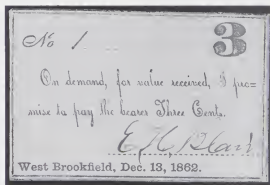 No 1. 3
On demand, for value received, I pro-
mise to pay the bearer Three Cents.
West Brookfield, Dec. 13, 1862.